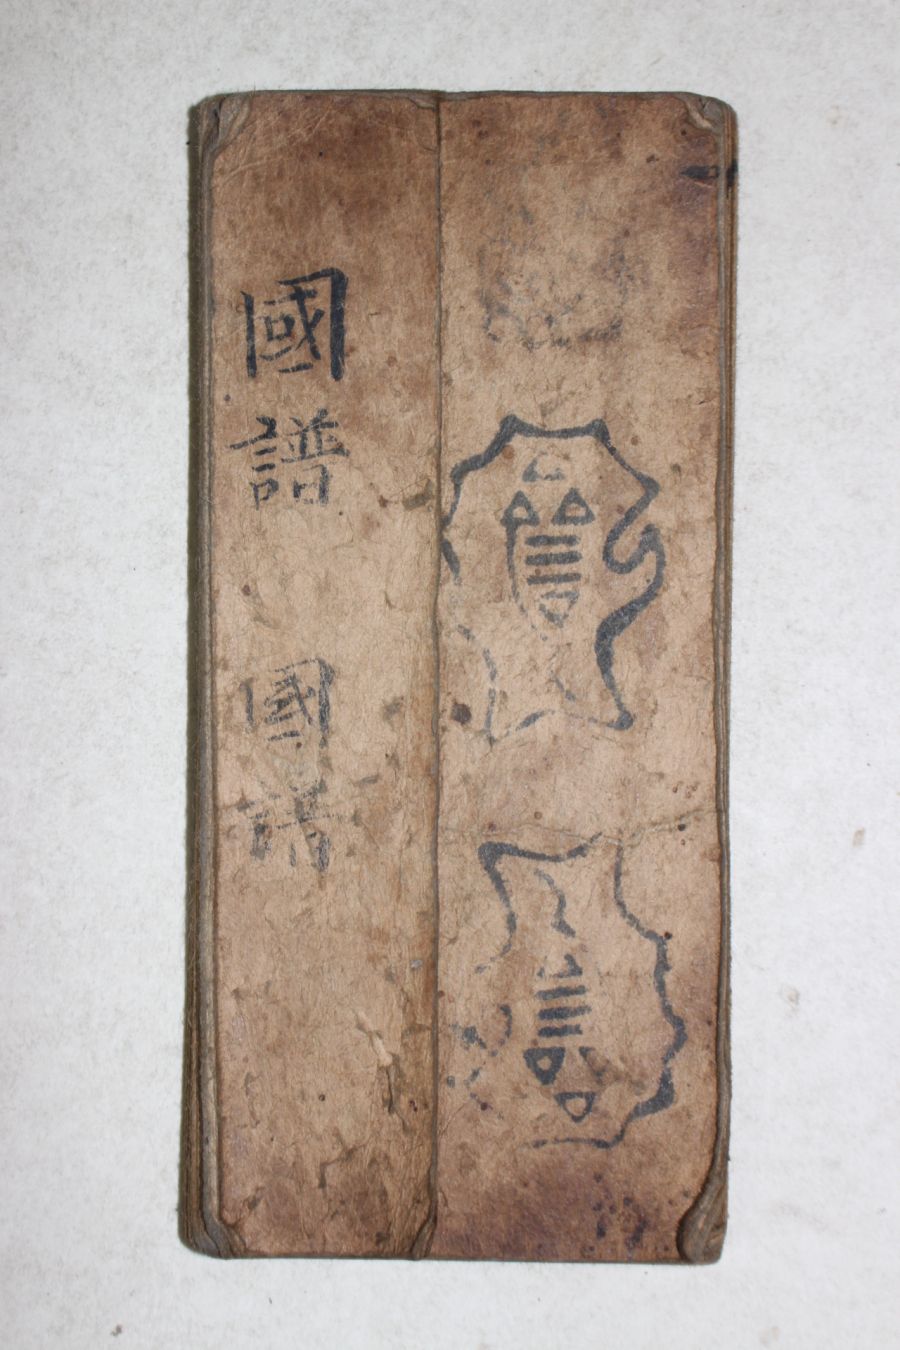 國譜
國譜